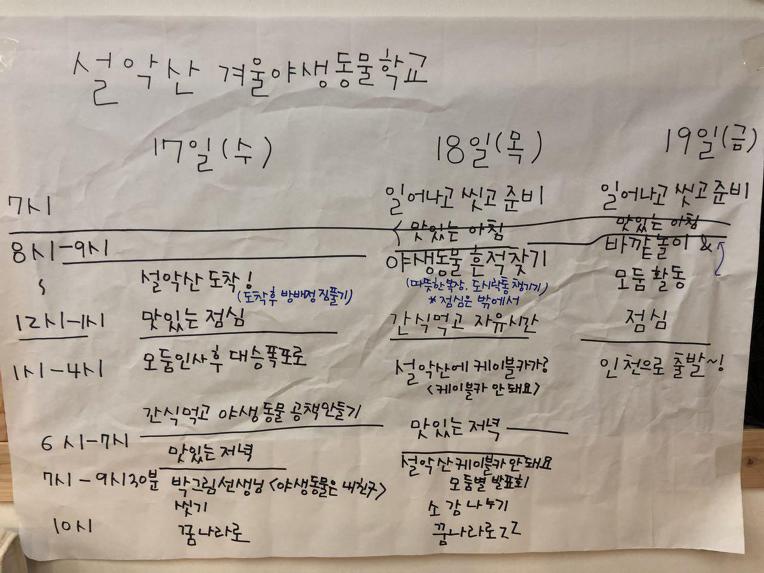 설악산 겨울야생동물학교
17일(수) 18일(목) 19일(금)
7시 일어나고 씻고 준비 일어나고 씻고 준비
<맛있는 아침 맛있는 아침
8시-9시 야생동물 흔적찾기 바깥놀이 &
설악산 도착! (따뜻한 복장, 도시락통 챙기기) 모둠 활동
(도착후 방배정 짐풀기) *점심은 밖에서
12시-1시 맛있는 점심 간식먹고 자유시간 점심
1시-4시 모둠인사 후 대승폭포로 설악산에 케이블카가? 인천으로 출발~!
<케이블카 안돼요>
간식먹고 야생동물 공책만들기 맛있는 저녁
6시-7시 맛있는 저녁
7시-9시30분 박그림선생님 <야생동물은 내친구> 설악산케이블카 안돼요
모둠별 발표회
씻기 소감 나누기
10시 꿈나라로 꿈나라로zz